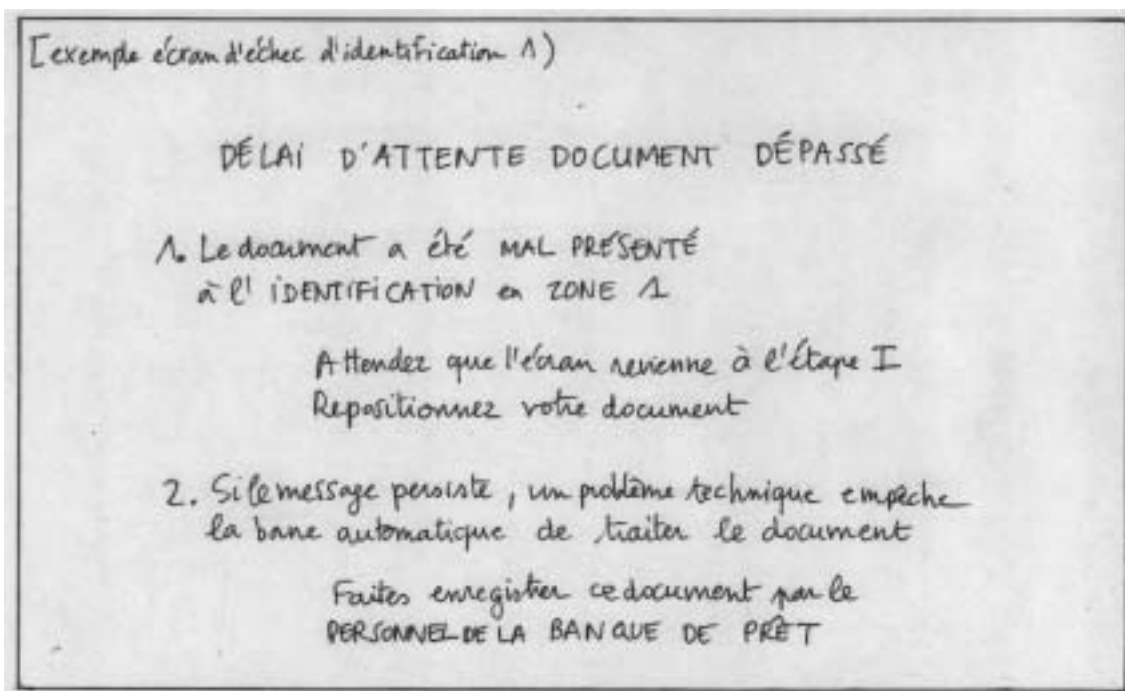 [exemple écran d'échec d'identification 1)
DÉLAI D'ATTENTE DOCUMENT DÉPASSÉ
1. Le document a été MAL PRÉSENTÉ
à l'IDENTIFICATION en ZONE 1
Attendez que l'écran revienne à l'étape I
Repositionnez votre document
2. Si le message persiste, un problème technique empêche
la bane automatique de traiter le document
Faites enregistrer ce document par le
PERSONNEL DE LA BANQUE DE PRÊT